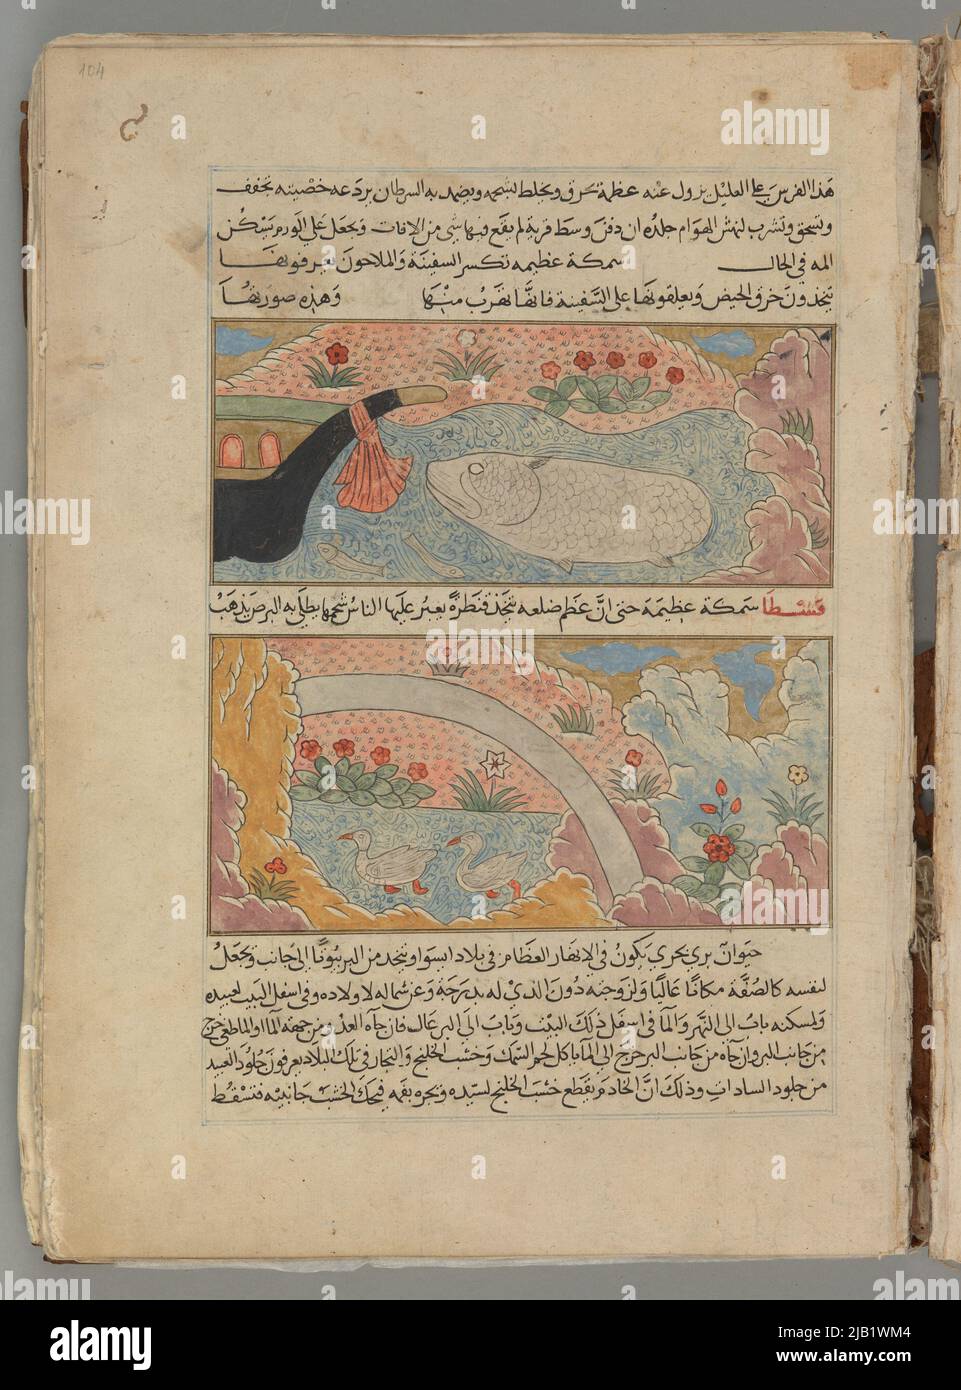 104
هذا الفرس على العليل يزول عنه عظمة تحرق ويخلط بشحمه ويضمد به السرطان يردعه خصيته تجفف
وتسحق وتشرب لنهش الهوام جلده ان دفن وسط قرية لم يقع فيها شي من الافات ويجعل على الورم يسكن
المه في الحال سمكة عظيمه تكسر السفينة والملاحون يعرفونها
يتخذون خرق الحيض ويعلقونها على السفينة فانها تهرب منها وهذه صورتها
قسطا سمكة عظيمة حتى ان عظم ضلعه يتخذ قنطرة يعبر عليها الناس شحمها يطلى به البرص يذهب
حيوان بري بحري يكون في الانهار العظام في بلاد ايسوا ويتخذ من البر بيوتا الى جانب ويجعل
لنفسه كالصفة مكانا عاليا ولزوجته دون الذي له بدرجة وعن شماله لاولاده وفي اسفل البيت لعبيده
ولمسكنه باب الى النهر والما في اسفل ذلك البيت وباب الى البر عال فان جآه العدو من جهة المآ او الما طغى خرج
من جانب البر وان جآه من جانب البر خرج الى المآ ياكل لحم السمك وخشب الخلنج والتجار في تلك البلاد يعرفون جلود العبيد
من جلود السادات وذلك ان الخادم يقطع خشب الخلنج لسيده ويجره بفمه فيحك الخشب جانبيه فتسقط
alamy
Image ID: 2JB1WM4
www.alamy.com